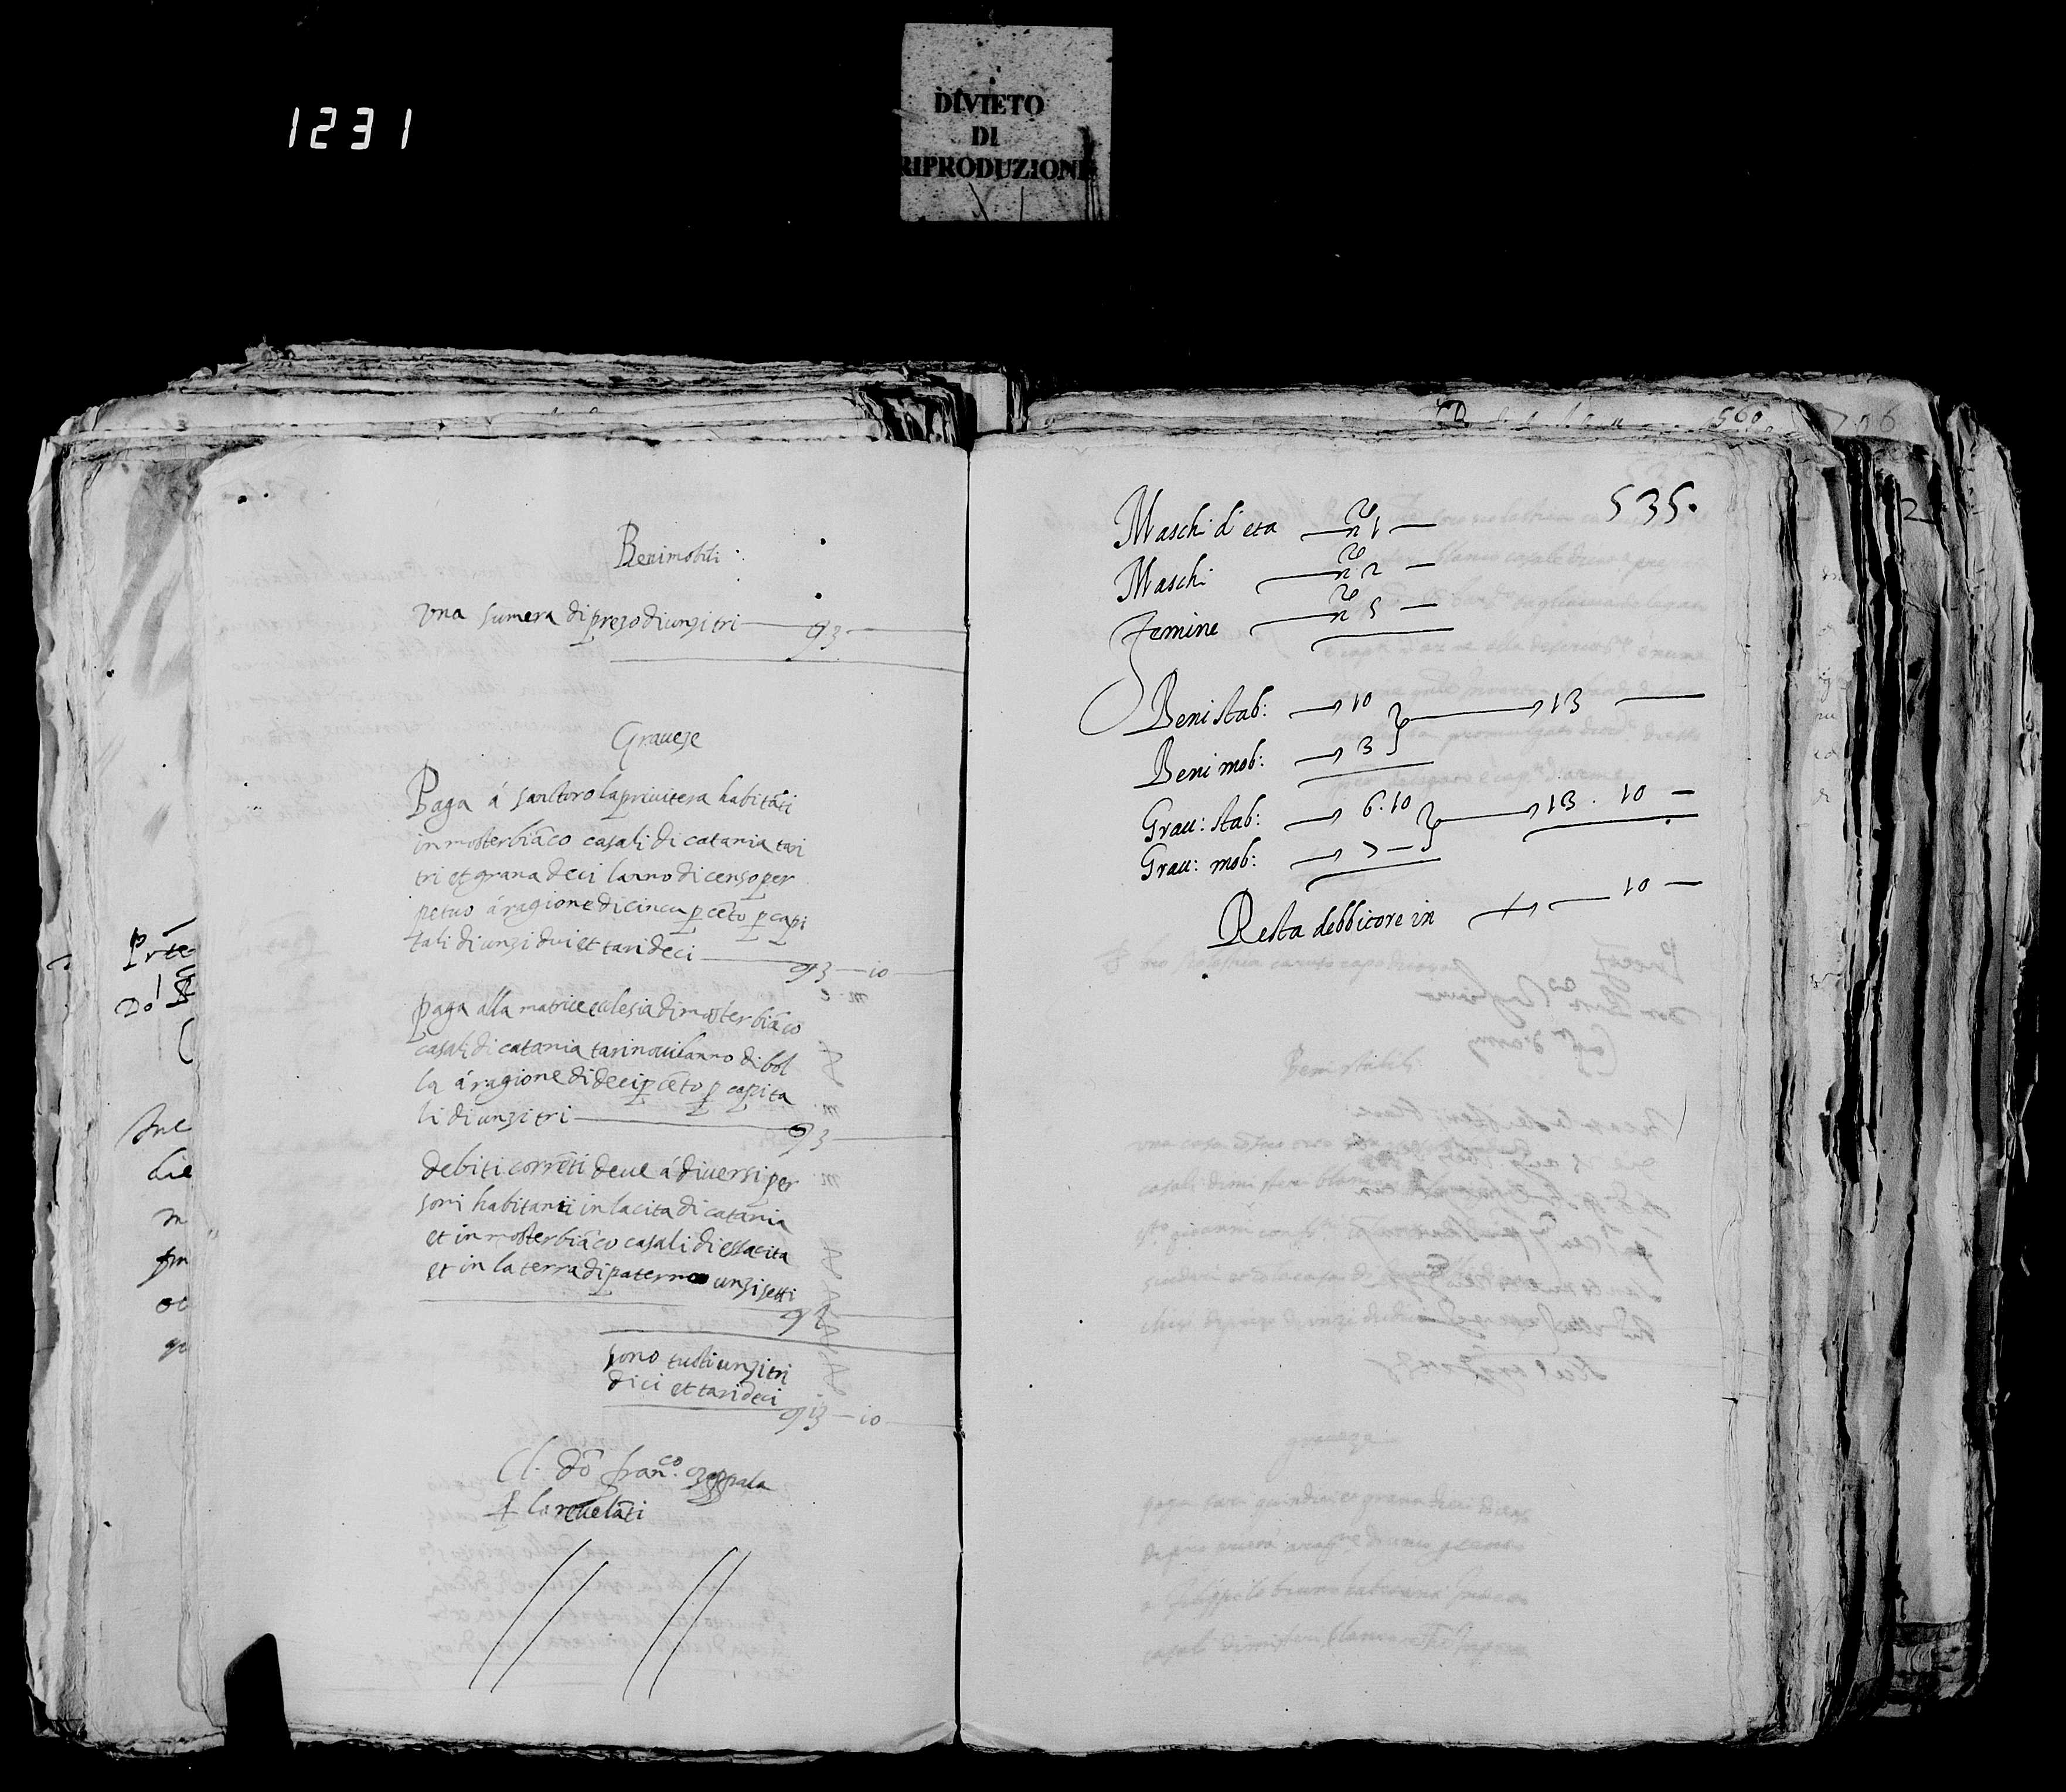 1231
DIVIETO
DI
RIPRODUZIONE
560
706
Beni mobili
una sumera di prezo di unzi tri 3
Graueze
Paga á santoro la priuitera habitāti
in mosterbiāco casali di catania tari
tri et grana deci lanno di censo per
petuo á ragione di cincu p cēto p capi
tali di unzi dui et tari deci 3 — 10
paga alla matrice eclesia di mosterbiāco
casali di catania tari noui lanno di bol
la á ragione di deci p cēto p capita
li di unzi tri 3
debiti corrēti deue á diuersi per
soni habitanti in la cita di catania
et in mosterbiāco casali di essa cita
et in la terra di paterno unzi setti
sono tucti unzi tri
dici et tari deci 13 — 10
Cl. dō fran.co
p lo reuelāti
535.
Maschi d'eta n.o 1
Maschi n.o 2
Femine n.o 5
Beni stab: 10 13
Beni mob: 3
Grau: stab: 6.10 13. 10
Grau: mob: 7
Resta debbitore in 10